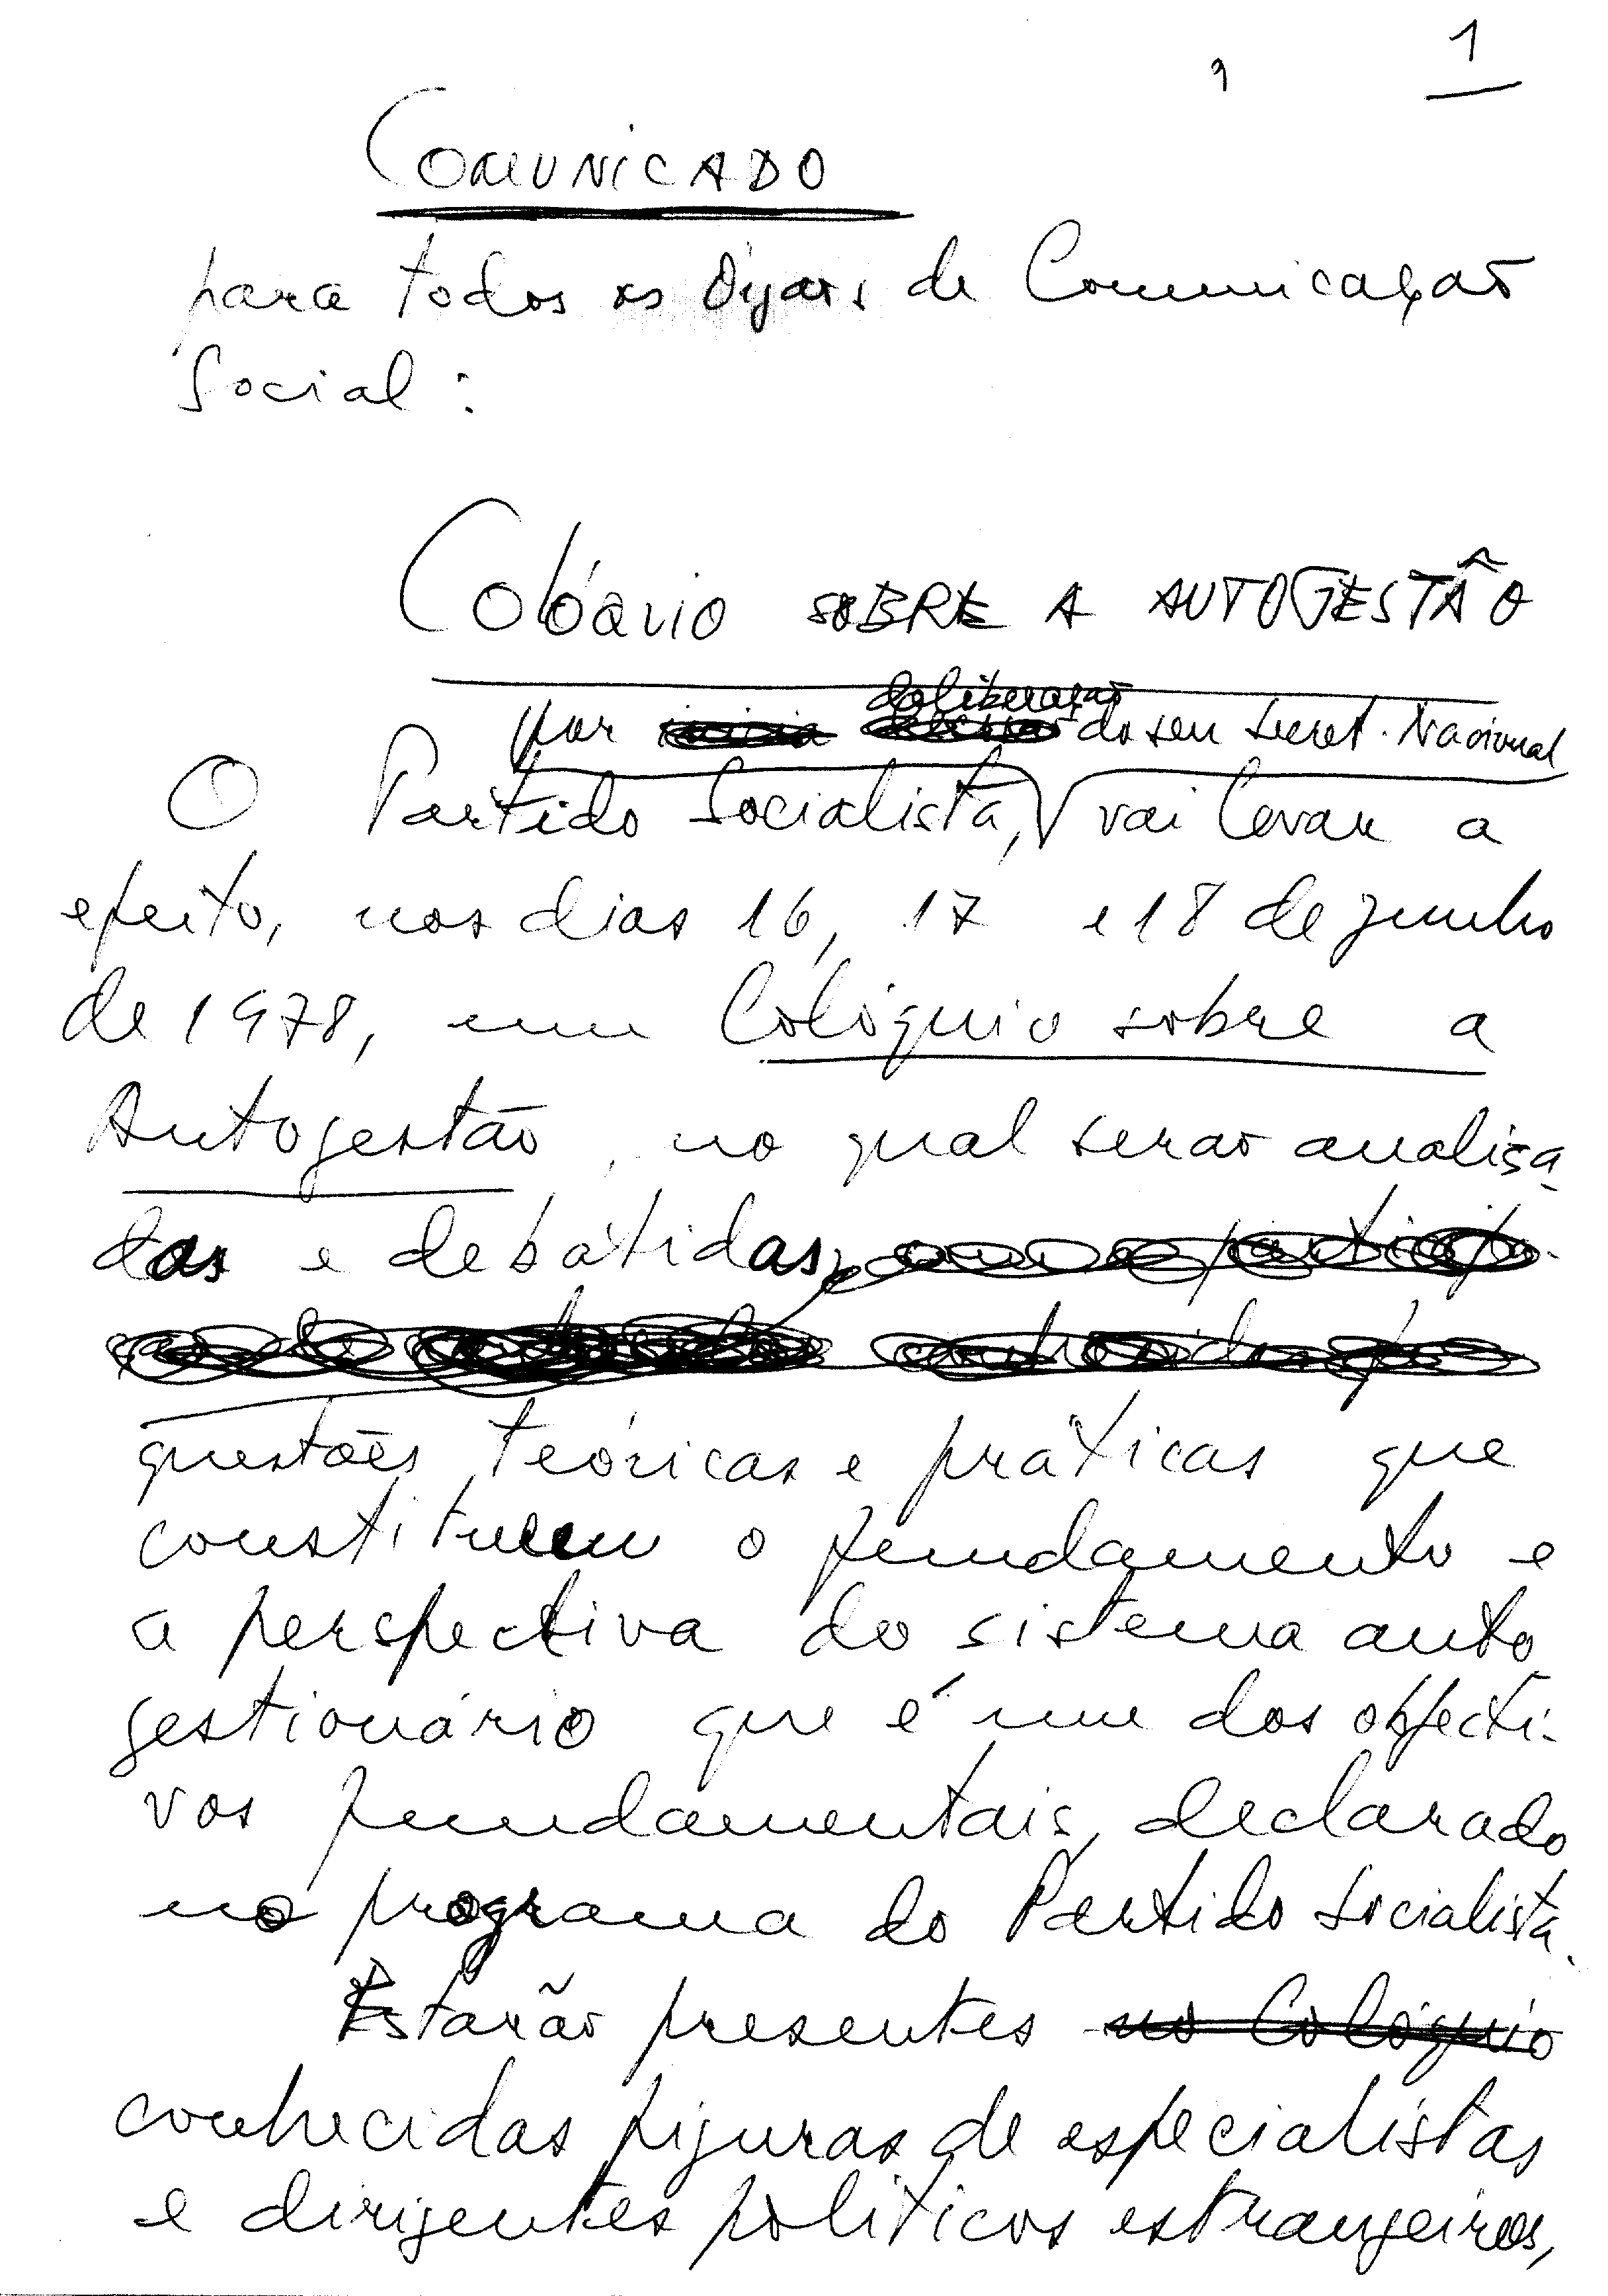 1
COMUNICADO
para todos os Órgãos de Comunicação
Social :
COLÓQUIO SOBRE A AUTOGESTÃO
deliberação
por do seu Secret. Nacional
O Partido Socialista, vai levar a
efeito, nos dias 16, 17 e 18 de junho
de 1978, um Colóquio sobre a
Autogestão, no qual serão analisa
das e debatidas,
questões teóricas e práticas que
constituem o fundamento e
a perspectiva do sistema auto
gestionário que é um dos objecti-
vos fundamentais, declarado
no programa do Partido Socialista.
Estarão presentes no Colóquio
conhecidas figuras de especialistas
e dirigentes políticos estrangeiros,